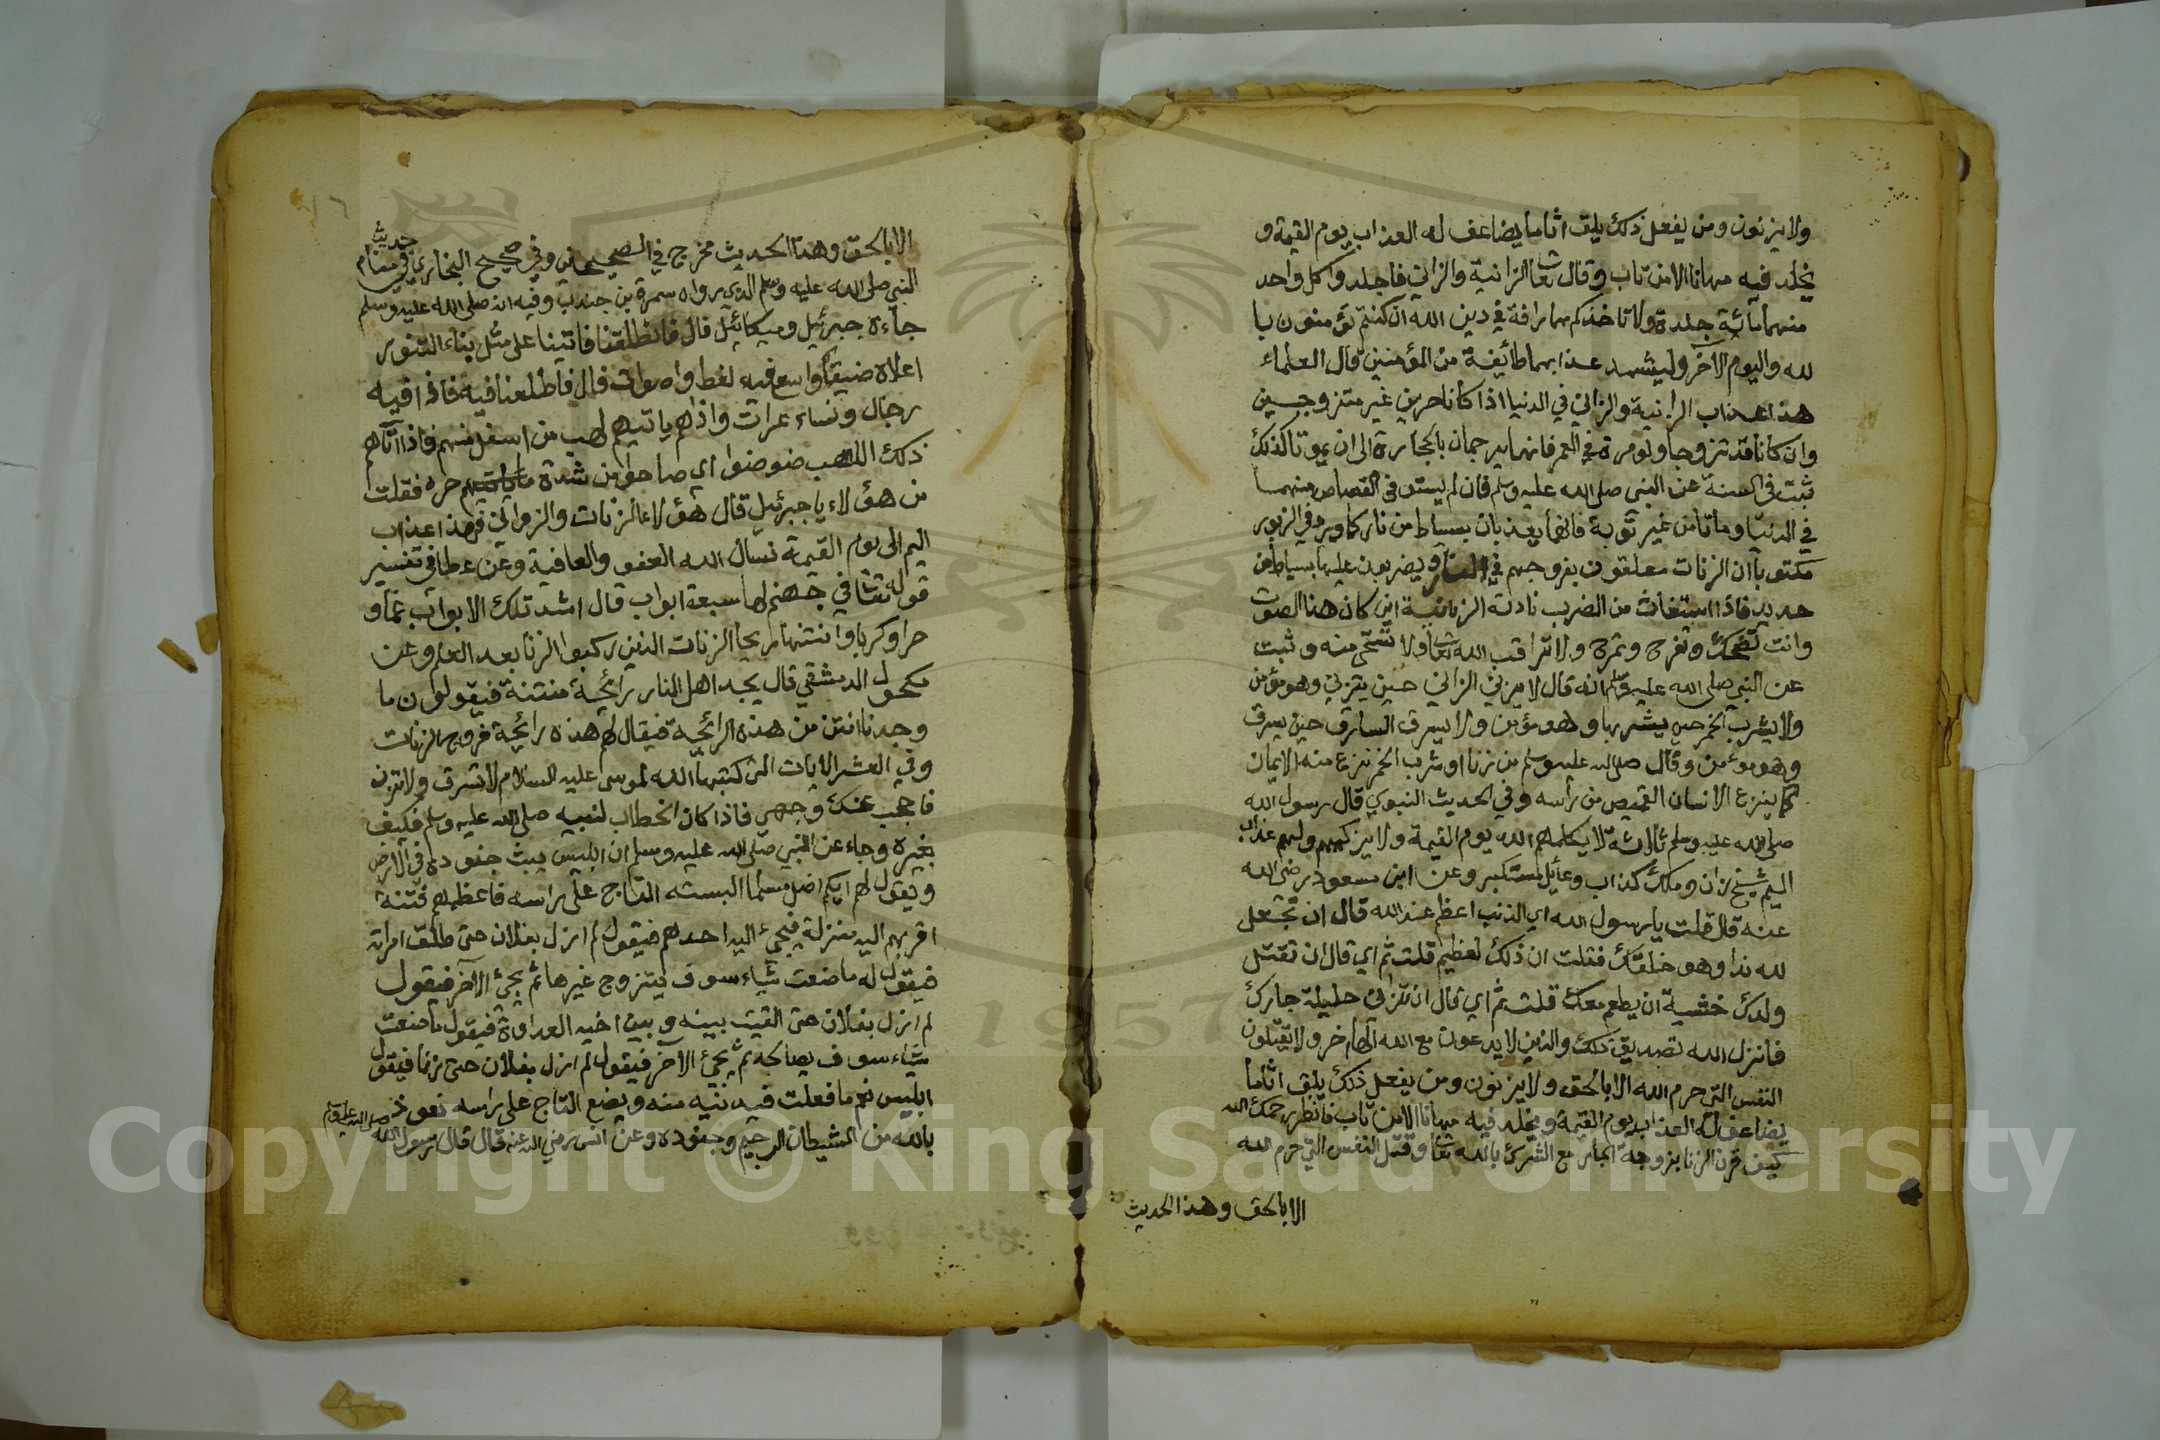 ولا يزنون ومن يفعل ذلك يلق اثاما يضاعف له العذاب يوم القيمة و
يخلد فيه مهانا الا من تاب وقال تعا الزانية والزاني فاجلدوا كل واحد
منهما مائة جلدة ولا تاخذكم بهما رافة في دين الله ان كنتم تؤمنون با
لله واليوم الآخر وليشهد عذابهما طائفة من المؤمنين قال العلماء
هذا عذاب الزانية والزاني في الدنيا اذا كانا حرين غير متزوجين
وان كانا قد تزوجا ولو مرة في العمر فانهما يرجمان بالحجارة الى ان يموتا كذلك
ثبت في السنة عن النبي صلى الله عليه وسلم فان لم يستوفى القصاص منهما
في الدنيا وماتا من غير توبة فانهما يعذبان بسياط من نار كما ورد في الزبور
مكتوبا ان الزنات معلقون بفروجهم في النار ويضربون عليها بسياط من
حديد فاذا استغاث من الضرب نادته الزبانية اين كان هذا الصوت
وانت تضحك وتفرح وتمرح ولا تراقب الله تعا ولا تستحي منه وثبت
عن النبي صلى الله عليه وسلم انه قال لا يزني الزاني حين يزني وهو مؤمن
ولا يشرب الخمر حين يشربها وهو مؤمن ولا يسرق السارق حين يسرق
وهو مؤمن وقال صلى الله عليه وسلم من زنا او شرب الخمر نزع منه الايمان
كما ينزع الانسان القميص من رأسه وفي الحديث النبوي قال رسول الله
صلى الله عليه وسلم ثلاثة لا يكلمهم الله يوم القيمة ولا يزكيهم ولهم عذاب
اليم شيخ زان وملك كذاب وعائل مستكبر وعن ابن مسعود رضي الله
عنه قال قلت يا رسول الله اي الذنب اعظم عند الله قال ان تجعل
لله ندا وهو خلقك فقلت ان ذلك لعظيم قلت ثم اي قال ان تقتل
ولدك خشية ان يطعم معك قلت ثم اي قال ان تزاني حليلة جارك
فانزل الله تصديق ذلك والذين لا يدعون مع الله الها اخر ولا يقتلون
النفس التي حرم الله الا بالحق ولا يزنون ومن يفعل ذلك يلق اثاما
يضاعف له العذاب يوم القيمة ويخلد فيه مهانا الا من تاب فانظر رحمك الله
كيف قرن الزنا بزوجة الجار مع الشرك بالله تعا وقتل النفس التي حرم الله
الا بالحق وهذا الحديث
الا بالحق وهذا الحديث مخرج في الصحيحين وفي صحيح البخاري في حديث منام
النبي صلى الله عليه وسلم الذي رواه سمرة بن جندب وفيه انه صلى الله عليه وسلم
جاءه جبرئيل وميكائيل قال فانطلقنا فاتينا على مثل بناء التنور
اعلاه ضيق واسع فيه لغط واصوات قال فاطلعنا فيه فاذا فيه
رجال ونساء عرات واذا هم ياتيهم لهب من اسفل منهم فاذا اتاهم
ذلك اللهب ضوضوا اي صاحوا من شدة حره فقلت
من هؤلاء يا جبرئيل قال هؤلاء الزنات والزواني فهذا عذاب
اليم الى يوم القيمة نسال الله العفو والعافية وعن عطا في تفسير
قوله تعا في جهنم لها سبعة ابواب قال اشد تلك الابواب غما و
حرا وكربا وانتنها ريحا الزنات الذين ركبوا الزنا بعد العلم وعن
مكحول الدمشقي قال يجد اهل النار رائحة منتنة فيقولون ما
وجدنا انتن من هذه الرائحة فيقال لهم هذه رائحة فروج الزنات
وفي العشر الايات التي كتبها الله لموسى عليه السلام لا تسرق ولا تزن
فاحجب عنك وجهي فاذا كان الخطاب لنبيه صلى الله عليه وسلم فكيف
بغيره وجاء عن النبي صلى الله عليه وسلم ان ابليس يبث جنوده في الارض
ويقول لهم ايكم اضل مسلما البسته التاج على راسه فاعظمهم فتنة
اقربهم اليه منزلة فيجيء اليه احدهم فيقول لم ازل بفلان حتى طلق امراته
فيقول له ما صنعت شياء سوف يتزوج غيرها ثم يجئ الآخر فيقول
لم ازل بفلان حتى القيت بينه وبين اخيه العداوة فيقول ما صنعت
شياء سوف يصالحه ثم يجئ الآخر فيقول لم ازل بفلان حتى زنا فيقول
ابليس نعم ما فعلت فيدنيه منه ويضع التاج على راسه نعوذ
بالله من الشيطان الرجيم وجنوده وعن انس رضي الله عنه قال قال رسول الله صلى الله عليه وسلم
1957
Copyright © King Saud University